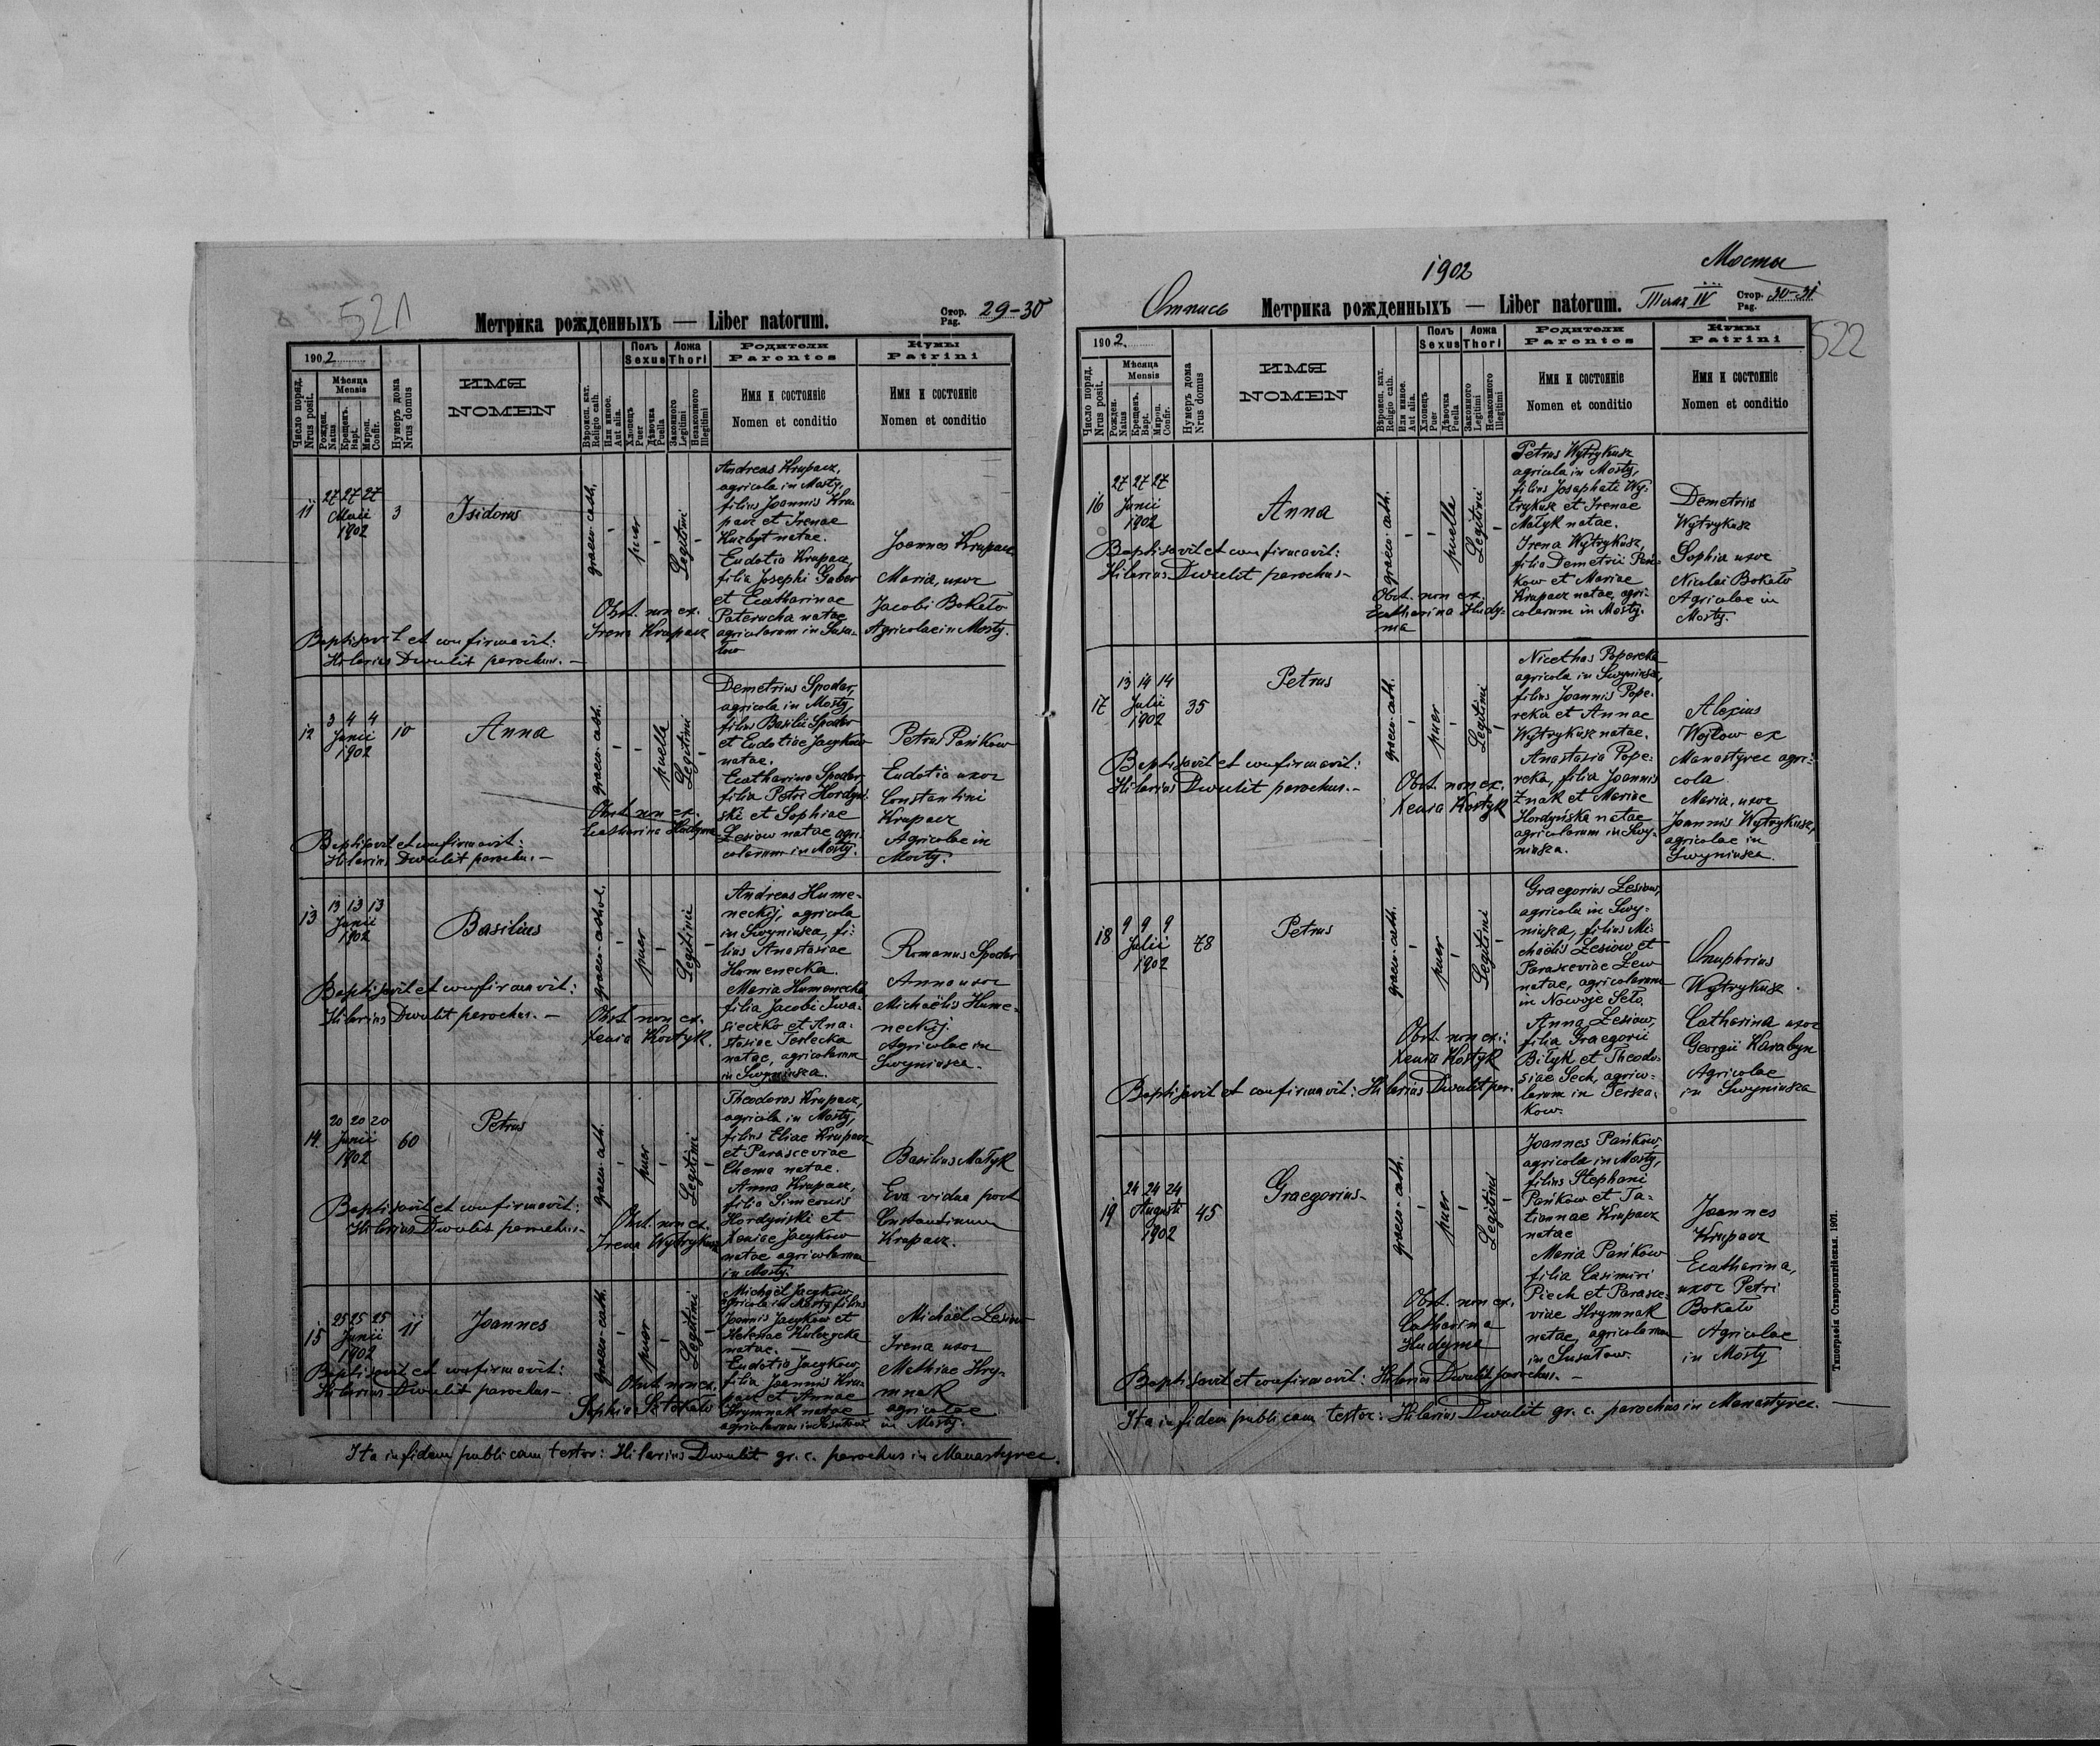 521
Метрика рожденныхъ — Liber natorum.
Стор. Pag. 29-30
1902
Число поряд. Nrus posit.
Мѣсяца Mensis
Рожден. Natus
Крещенъ. Bapt.
Мироп. Confir.
Нумеръ дома Nrus domus
ИМЯ
NOMEN
Вѣроисп. кат. Religio cath.
Или иное. Aut alia.
Полъ Sexus
Хлопецъ Puer
Дѣвочка Puella
Ложа Thori
Законного Legitimi
Незаконного Illegitimi
Родители Parentes
Имя и состояніе
Nomen et conditio
Кумы Patrini
Имя и состояніе
Nomen et conditio
11
27 27 27
Maii
1902
3
Isidorus
graeco-cath.
puer
Legitimi
Andreas Krupacz,
agricola in Mosty,
filius Joannis Kru-
pacz et Irenae
Kuzbyt natae.
Eudotia Krupacz,
filia Josephi Gaber
et Ecatharinae
Paterucha natae
agricolarum in Susu-
łow
Joannes Krupacz
Maria, uxor
Jacobi Bokało
Agricolae in Mosty.
Obst. non ex.
Irena Krupacz
Baptisavit et confirmavit:
Hilarius Dwulit parochus. —
12
3 4 4
Junii
1902
10
Anna
graeco-cath.
puella
Legitimi
Demetrius Spodar,
agricola in Mosty,
filius Basilii Spodar
et Eudotiae Jacykow
natae.
Ecatharina Spodar,
filia Petri Hordyń-
ski et Sophiae
Lesiow natae, agri-
colarum in Mosty.
Petrus Pańkow
Eudotia uxor
Constantini
Krupacz
Agricolae in
Mosty.
Obst. non ex.
Ecatharina Hudyma
Baptisavit et confirmavit:
Hilarius Dwulit parochus. —
13
13 13 13
Junii
1902
Basilius
graeco-cathol.
puer
Legitimi
Andreas Hume-
neckij, agricola
in Swyniusza, fi-
lius Anastasiae
Humenecka.
Maria Humenecka
filia Jacobi Iwa-
sieczko et Ana-
stasiae Terlecka
natae, agricolarum
in Swyniusza.
Romanus Spodar
Anna uxor
Michaëlis Hume-
neckij.
Agricolae in
Swyniusza.
Obst. non ex.
Xenia Kostyk.
Baptisavit et confirmavit:
Hilarius Dwulit parochus. —
14.
20 20 20
Junii
1902
60
Petrus
graeco-cath.
puer
Legitimi
Theodorus Krupacz,
agricola in Mosty,
filius Eliae Krupacz
et Parasceviae
Chema natae.
Anna Krupacz,
filia Simeonis
Hordyński et
Xeniae Jacykow
natae agricolarum
in Mosty.
Basilius Małyk
Eva vidua post
Constantinum
Krupacz.
Obst. non ex.
Irena Wytrykusz
Baptisavit et confirmavit:
Hilarius Dwulit parochus. —
15
25 25 25
Junii
1902
11
Joannes
graeco-cath.
puer
Legitimi
Michaël Jacykow,
agricola in Mosty, filius
Joannis Jacykow et
Helenae Kulczycka
natae. —
Eudotia Jacykow,
filia Joannis Kru-
pacz et Annae
Hrymnak natae
agricolarum in Susułow
Michaël Lesiow
Irena uxor
Mathiae Hry-
mnak
agricolae
in Mosty.
Obst. non ex.
Sophia
Baptisavit et confirmavit:
Hilarius Dwulit parochus —
Ita in fidem publicam testor: Hilarius Dwulit gr. c. parochus in Manastyrec.
1902
Мосты
Отпись
Метрика рожденныхъ — Liber natorum.
Томъ IV
Стор. Pag. 30-31
522
1902.
Число поряд. Nrus posit.
Мѣсяца Mensis
Рожден. Natus
Крещенъ. Bapt.
Мироп. Confir.
Нумеръ дома Nrus domus
ИМЯ
NOMEN
Вѣроисп. кат. Religio cath.
Или инное. Aut alia.
Полъ Sexus
Хлопецъ Puer
Дѣвочка Puella
Ложа Thori
Законного Legitimi
Незаконного Illegitimi
Родители Parentes
Имя и состояніе
Nomen et conditio
Кумы Patrini
Имя и состояніе
Nomen et conditio
16
27 27 27
Junii
1902
Anna
graeco-cath.
puella
Legitimi
Petrus Wytrykusz
agricola in Mosty,
filius Josaphati Wy-
trykusz et Irenae
Małyk natae.
Irena Wytrykusz,
filia Demetrii Pań-
kow et Mariae
Krupacz natae, agri-
colarum in Mosty.
Demetrius
Wytrykusz
Sophia uxor
Nicolai Bokało
Agricolae in
Mosty.
Obst. non ex.
Ecatharina Hudy-
ma
Baptisavit et confirmavit:
Hilarius Dwulit parochus —
17
13 14 14
Julii
1902
35
Petrus
graeco-cath.
puer
Legitimi
Nicethas Popereka
agricola in Swyniusza,
filius Joannis Pope-
reka et Annae
Wytrykusz natae.
Anastasia Pope-
reka, filia Joannis
Znak et Mariae
Hordyńska natae
agricolarum in Swy-
niusza.
Alexius
Wojtow ex
Manastyrec agri-
cola.
Maria, uxor
Joannis Wytrykusz,
agricolae in
Swyniusza.
Obst. non ex.
Xenia Kostyk
Baptisavit et confirmavit:
Hilarius Dwulit parochus. —
18
9 9 9
Julii
1902
78
Petrus
graeco-cath.
puer
Legitimi
Graegorius Lesiow,
agricola in Swy-
niusza, filius Mi-
chaëlis Lesiow et
Parasceviae Lew
natae, agricolarum
in Nowoje Seło.
Anna Lesiow,
filia Graegorii
Biłyk et Theodo-
siae Sech, agrico-
larum in Tersza-
kow.
Onuphrius
Wytrykusz.
Catharina uxor
Georgii Karabyn
Agricolae
in Swyniusza
Obst. non ex.:
Xenia Kostyk
Baptisavit et confirmavit: Hilarius Dwulit par.
19
24 24 24
Augusti
1902
45
Graegorius-
graeco-cath.
puer
Legitimi
Joannes Pańkow,
agricola in Mosty,
filius Stephani
Pańkow et Ta-
tiannae Krupacz
natae
Maria Pańkow
filia Casimiri
Piech et Parasce-
viae Hrymnak
natae, agricolarum
in Susułow.
Joannes
Krupacz
Ecatharina,
uxor Petri
Bokało
Agricolae
in Mosty
Obst. non ex.
Catharina
Hudyma
Baptisavit et confirmavit: Hilarius Dwulit parochus. —
Ita in fidem publicam testor: Hilarius Dwulit gr. c. parochus in Manastyrec. —
Типографія Ставропигійская. 1901.